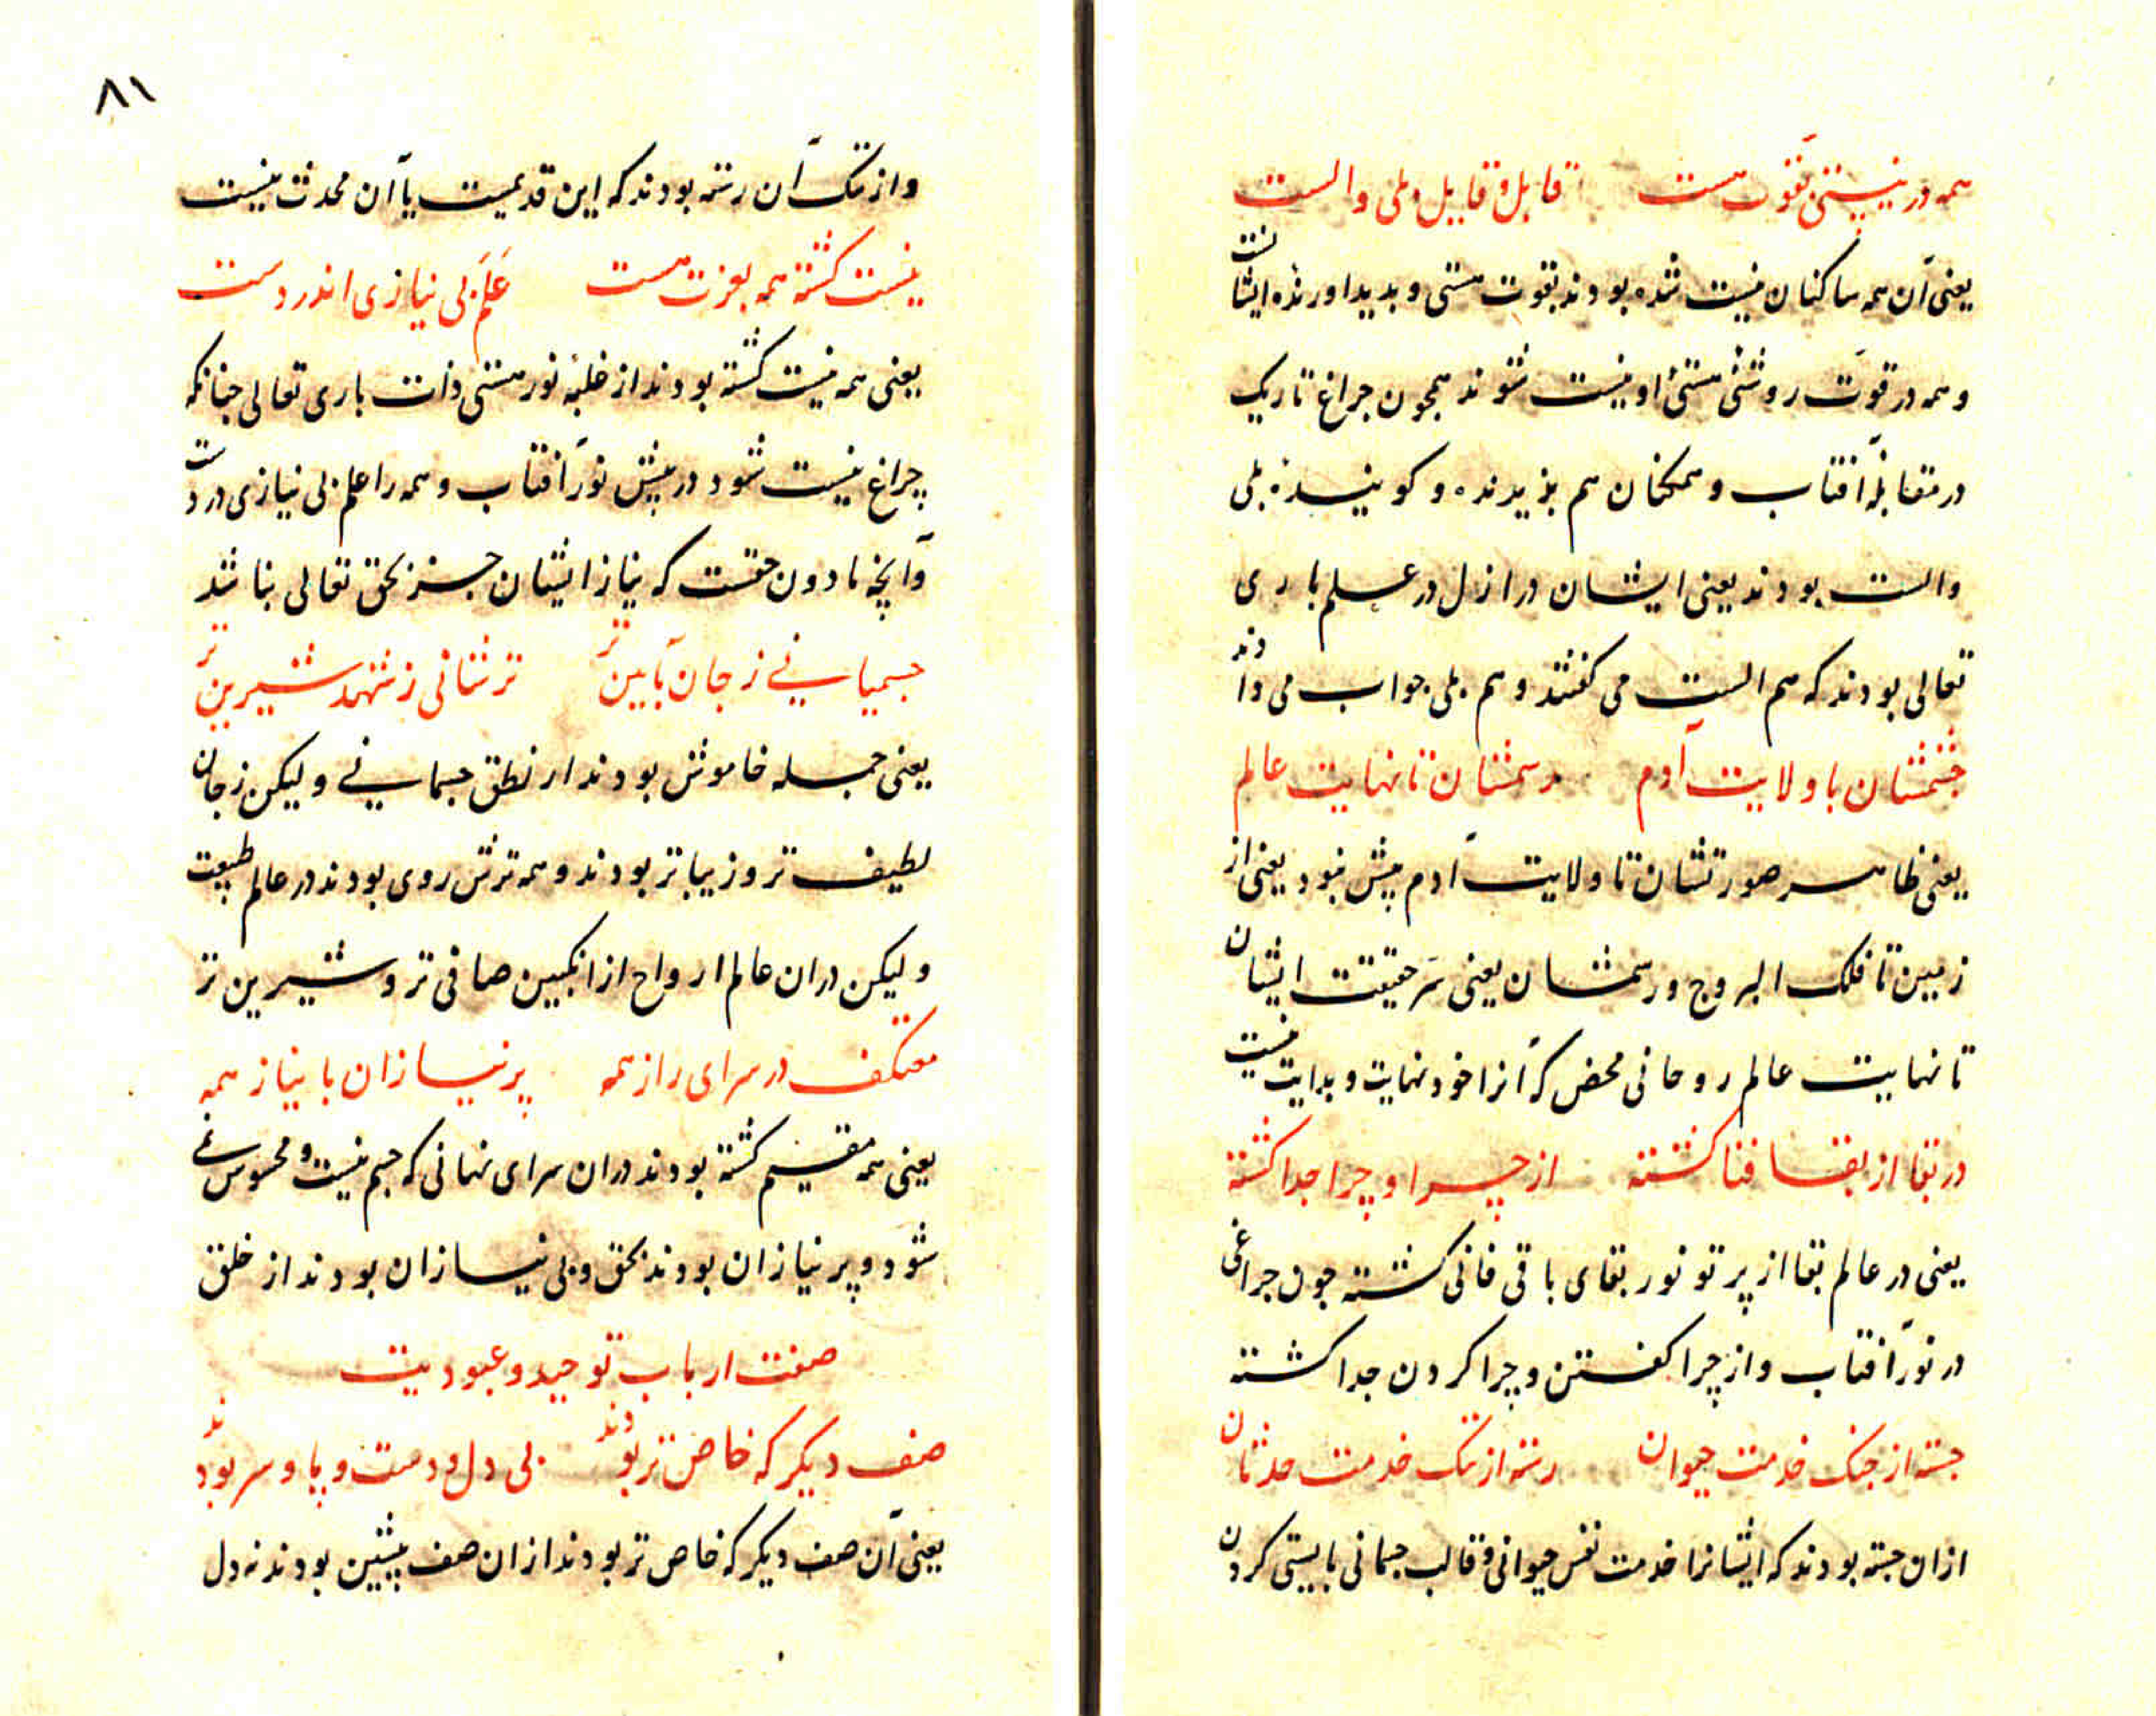 همه در نیستی بقوت هست قابل و قایل بلی و الست
یعنی آن همه ساکنان نیست شده بودند بقوت هستی و بدید اورنده ایشانست
و همه در قوت روشنی هستئ او نیست شوند همجون جراغ تاریک
در مقابلهٔ آفتاب و همکنان هم بزیرنده و کوینده بلی
والست بودند یعنی ایشان در ازل در علم باری
تعالی بودند که هم الست می کفتند و هم بلی جواب می دادند
جشمشان با ولایت آدم رسمشان تا نهایت عالم
یعنی ظاهر صورتشان تا ولایت آدم پیش نبود یعنی از
زمین تا فلک البروج و رسمشان یعنی سر حقیقت ایشان
تا نهایت عالم روحانی محض که آنرا خود نهایت و بدایت نیست
در بقا از بقا فنا کشته از چرا و چرا جدا کشته
یعنی در عالم بقا از پرتو نور بقای باقی فانی کشته جون جراغی
در نور آفتاب و از چرا کفتن و چرا کردن جدا کشته
جسته از جنک خدمت حیوان رسته از تک خدمت حدثان
ازان جسته بودند که ایشانرا خدمت نفس حیوانی و قالب جسمانی بایستی کردن
۸۱
و از تک آن رسته بودند که این قدیمیست یا آن محدث نیست
نیست کشته همه بعزت هست عَلَم بی نیازی اندر دست
یعنی همه نیست کشته بودند از غلبهٔ نور هستی ذات باری تعالی جنانکه
چراغ نیست شود در پیش نور آفتاب و همه را علم بی نیازی در دست
و آنچه مادون حقست که نیاز ایشان جز بحق تعالی نباشد
جسمیانی ز جان بآیین تر ترشانی ز شهد شیرین تر
یعنی جمله خاموش بودند از نطق جسمانی و لیکن ز جان
لطیف تر و زیباتر بودند و همه ترش روی بودند در عالم طبیعت
و لیکن دران عالم ارواح از انکبین صافی تر و شیرین تر
معتکف در سرای راز همه پر نیازان با نیاز همه
یعنی همه مقیم کشته بودند دران سرای نهانی که جسم نیست و محسوس نمی
شود و پر نیازان بودند بحق و بی نیازان بودند از خلق
صفت ارباب توحید و عبودیت
صف دیکر که خاص تر بودند بی دل و دست و پا و سر بودند
یعنی آن صف دیکر که خاص تر بودند ازان صف پیشین بودند نه دل